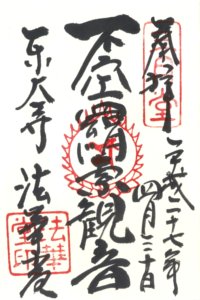 奉拝 平成二十七年
四月三十日
不空羂索観音
東大寺 法華堂
法華堂印